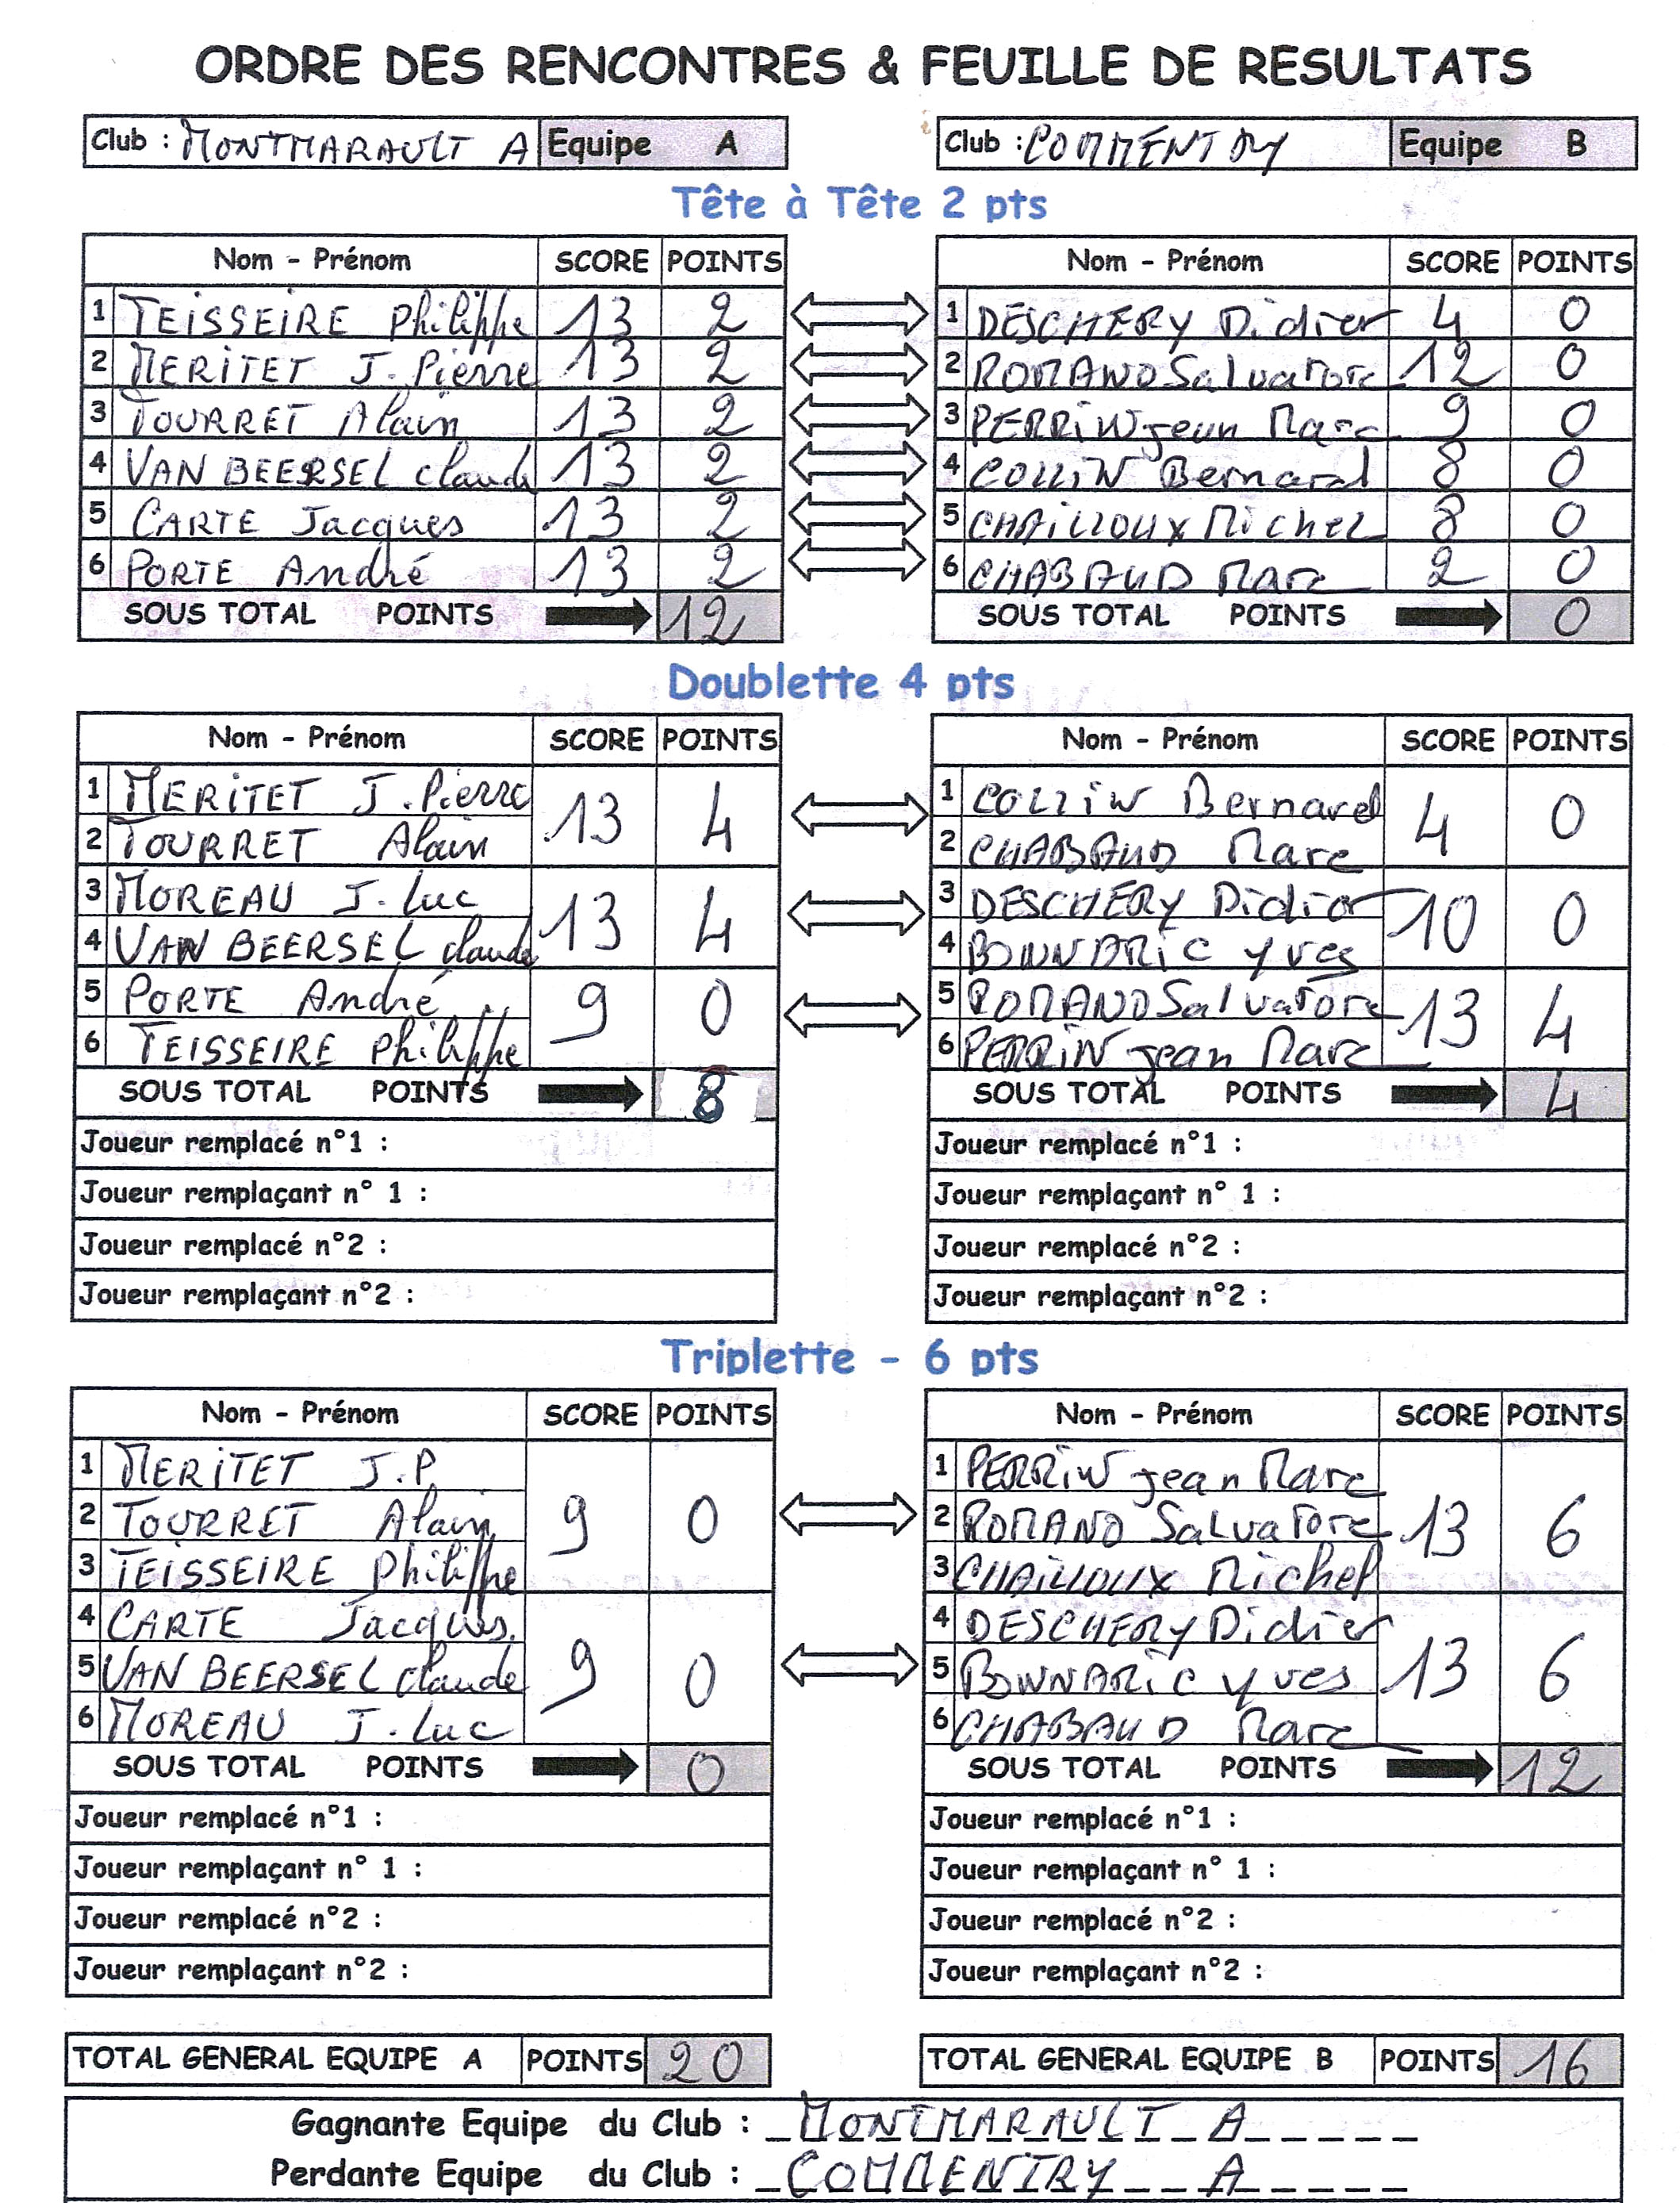 ORDRE DES RENCONTRES & FEUILLE DE RESULTATS
Club : MONTMARAULT A Equipe A
Club : COMMENTRY Equipe B
Tête à Tête 2 pts
Nom - Prénom SCORE POINTS Nom - Prénom SCORE POINTS
1 TEISSEIRE Philippe 13 2 1 DESCHERY Didier 4 0
2 MERITET J. Pierre 13 2 2 ROMANO Salvatore 12 0
3 TOURRET Alain 13 2 3 PERRIN jean Marc 9 0
4 VAN BEERSEL claude 13 2 4 COLLIN Bernard 8 0
5 CARTE Jacques 13 2 5 CHAILLOUX Michel 8 0
6 PORTE André 13 2 6 CHABAUD Marc 2 0
SOUS TOTAL POINTS 12 SOUS TOTAL POINTS 0
Doublette 4 pts
Nom - Prénom SCORE POINTS Nom - Prénom SCORE POINTS
1 MERITET J. Pierre 13 4 1 COLLIN Bernard 4 0
2 TOURRET Alain 2 CHABAUD Marc
3 MOREAU J. Luc 13 4 3 DESCHERY Didier 10 0
4 VAN BEERSEL claude 4 BONNARIC yves
5 PORTE André 9 0 5 ROMANO Salvatore 13 4
6 TEISSEIRE Philippe 6 PERRIN jean Marc
SOUS TOTAL POINTS 8 SOUS TOTAL POINTS 4
Joueur remplacé n°1 : Joueur remplacé n°1 :
Joueur remplaçant n° 1 : Joueur remplaçant n° 1 :
Joueur remplacé n°2 : Joueur remplacé n°2 :
Joueur remplaçant n°2 : Joueur remplaçant n°2 :
Triplette - 6 pts
Nom - Prénom SCORE POINTS Nom - Prénom SCORE POINTS
1 MERITET J.P 1 PERRIN jean Marc
2 TOURRET Alain 9 0 2 ROMANO Salvatore 13 6
3 TEISSEIRE Philippe 3 CHAILLOUX Michel
4 CARTE Jacques. 4 DESCHERY Didier
5 VAN BEERSEL claude 9 0 5 BONNARIC yves 13 6
6 MOREAU J. Luc 6 CHABAUD Marc
SOUS TOTAL POINTS 0 SOUS TOTAL POINTS 12
Joueur remplacé n°1 : Joueur remplacé n°1 :
Joueur remplaçant n° 1 : Joueur remplaçant n° 1 :
Joueur remplacé n°2 : Joueur remplacé n°2 :
Joueur remplaçant n°2 : Joueur remplaçant n°2 :
TOTAL GENERAL EQUIPE A POINTS 20 TOTAL GENERAL EQUIPE B POINTS 16
Gagnante Equipe du Club : MONTMARAULT A
Perdante Equipe du Club : COMMENTRY A